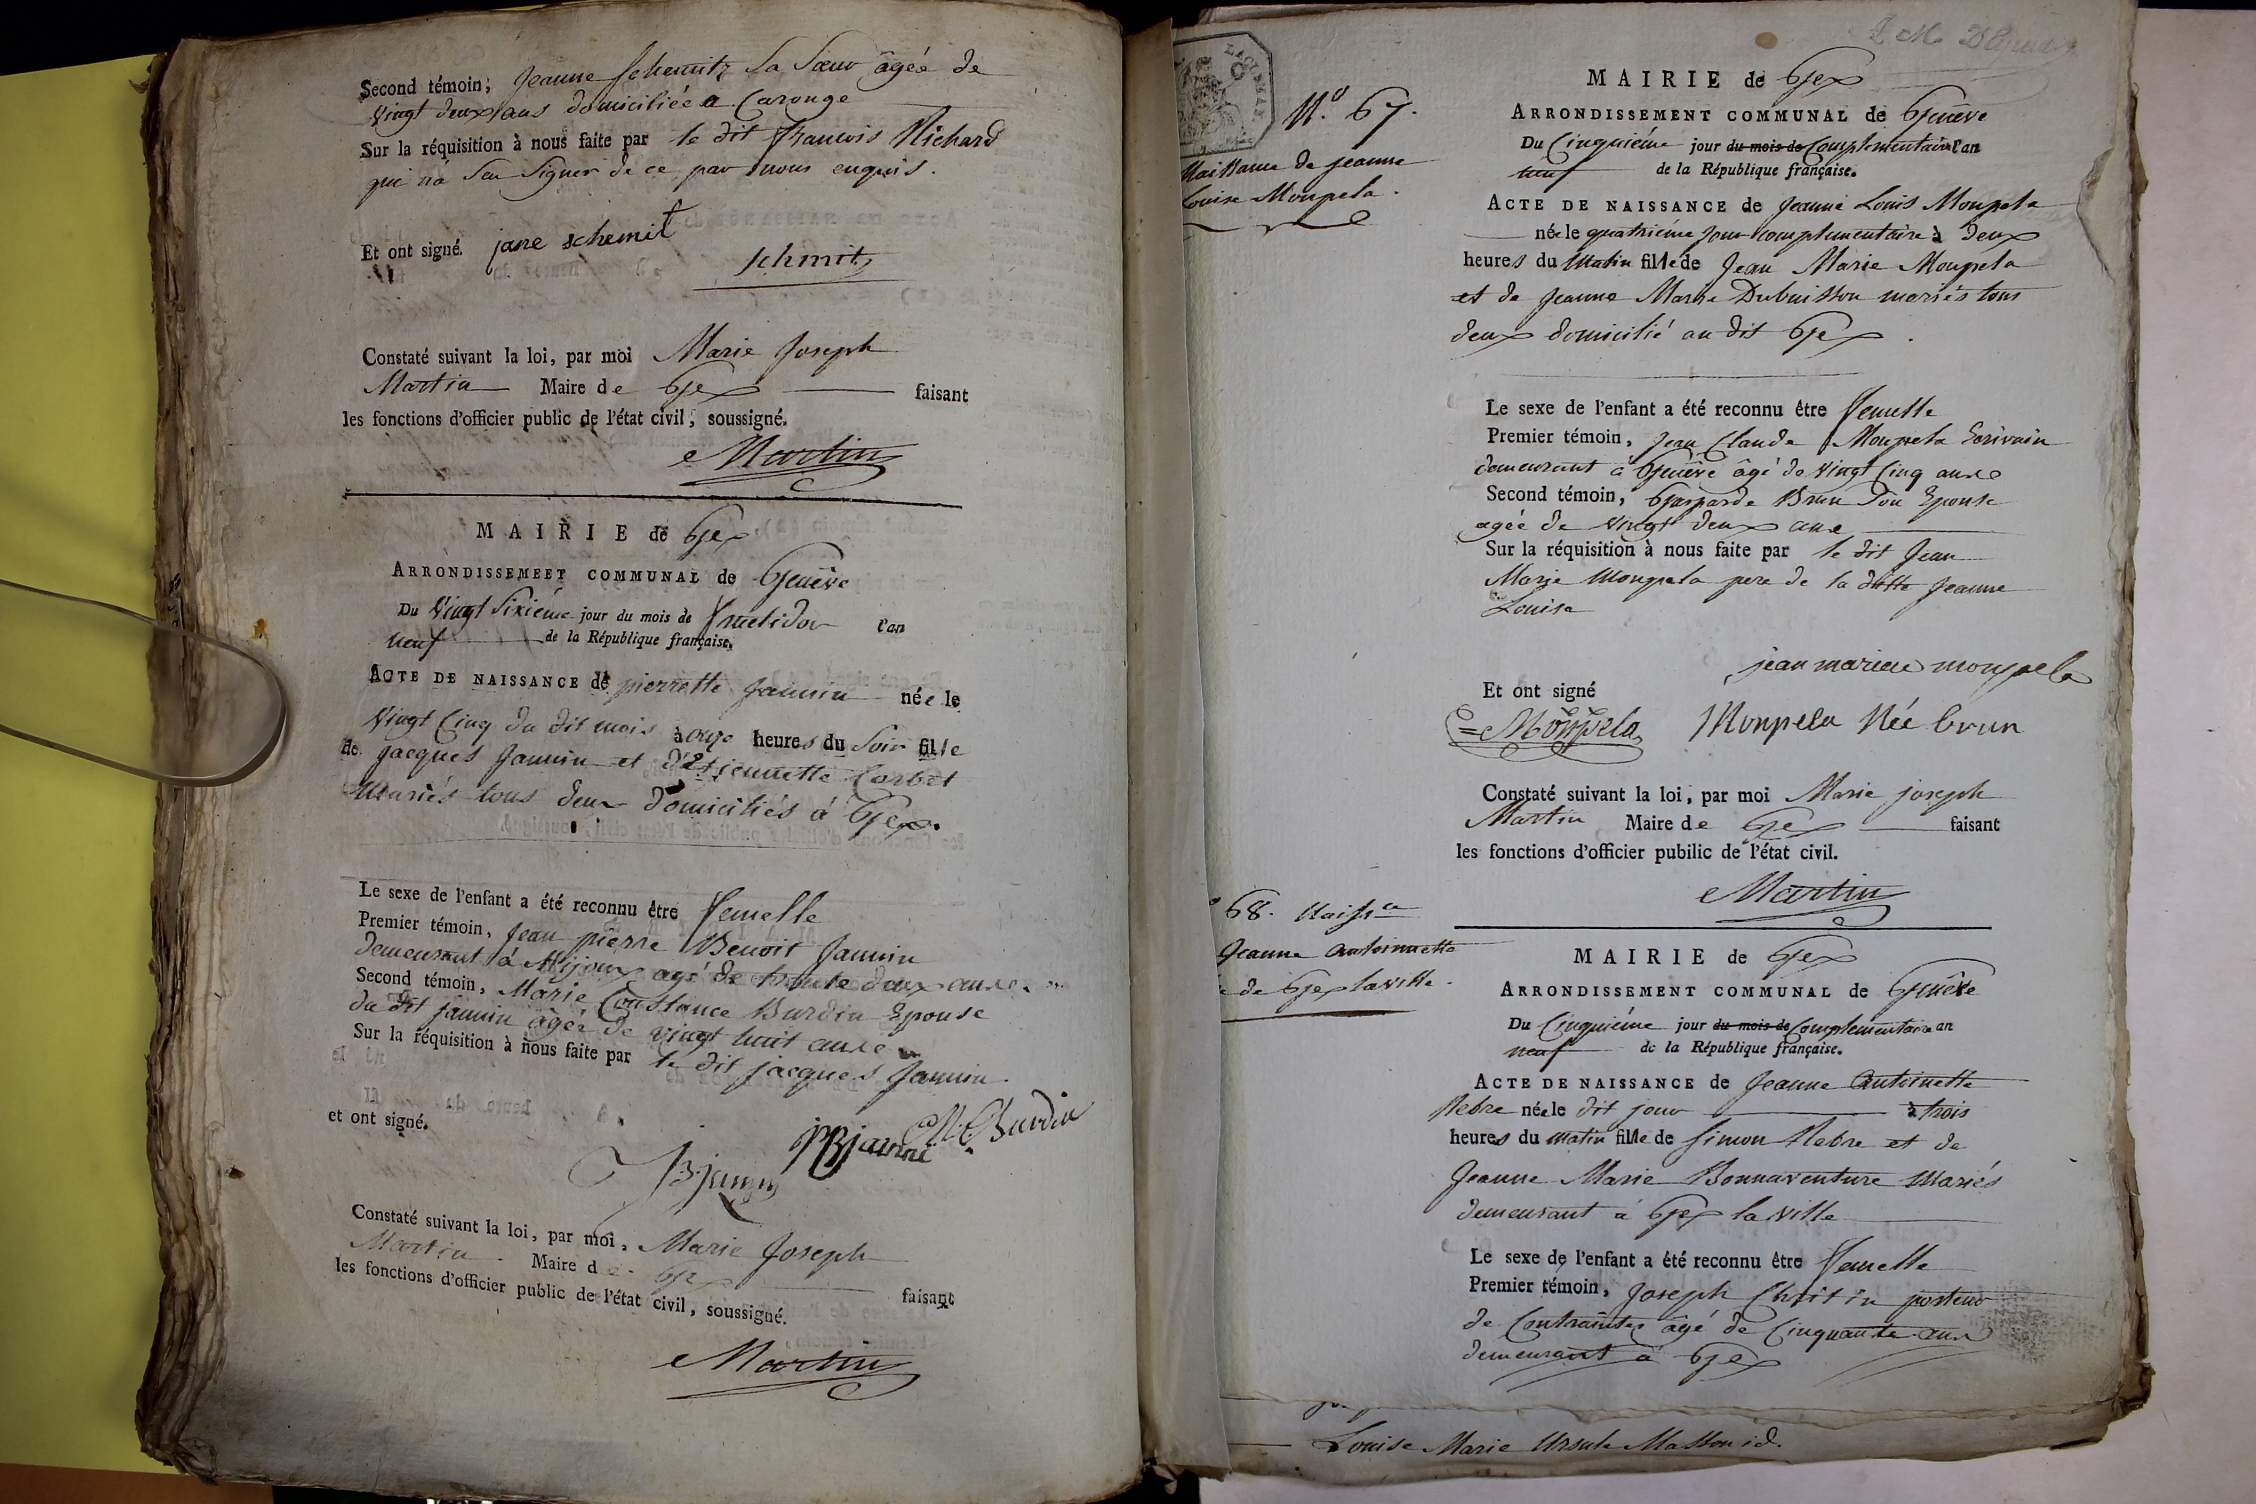 Second témoin, Jeanne Schemitz sa Sœur âgée de
Vingt deux ans domiciliée a Carouge
Sur la réquisition à nous faite par le dit francois Richard
qui n'a Seu Signer de ce par nous enquis.
Et ont signé. jane schemit
schmitz
Constaté suivant la loi, par moi Marie Joseph
Martin Maire de Gex faisant
les fonctions d'officier public de l'état civil, soussigné.
Martin
MAIRIE de Gex
ARRONDISSEMEET COMMUNAL de Genève
Du Vingt Sixiéme jour du mois de fructidor l'an
neuf de la République française.
ACTE DE NAISSANCE de pierrette Jannin née le
Vingt Cinq du dit mois à onze heures du Soir fille
de jacques Jannin et d'Etiennette Corbet
Mariés tous deux domiciliés à Gex.
Le sexe de l'enfant a été reconnu être femelle
Premier témoin, Jean pierre Benoit Jannin
demeurant à Mijoux agé de trente deux ans
Second témoin, Marie Constance Burdin Epouse
du dit jannin âgée de vingt huit ans
Sur la réquisition à nous faite par le dit jacques Jannin
et ont signé. M. C. Burdin
Constaté suivant la loi, par moi, Marie Joseph
Martin Maire de Gex faisant
les fonctions d'officier public de l'état civil, soussigné.
Martin
N.º 67.
Naissance de jeanne
Louise Monpela.
MAIRIE de Gex
ARRONDISSEMENT COMMUNAL de Genève
Du Cinquiéme jour du mois de Complementaire l'an
neuf de la République française.
ACTE DE NAISSANCE de Jeanne Louis Monpela
née le quatriéme jour complementaire à deux
heures du Matin fille de Jean Marie Monpela
et de Jeanne Marie Dubuisson mariés tous
deux domicilié au dit Gex.
Le sexe de l'enfant a été reconnu être femelle
Premier témoin, Jean Claude Monpela Ecrivain
demeurant à Genêve âgé de vingt Cinq ans
Second témoin, Gasparde Brun Son Epouse
agée de vingt deux ans
Sur la réquisition à nous faite par le dit Jean
Marie Monpela pere de la ditte Jeanne
Louise
jean marie monpela
Et ont signé
Monpela Monpela Née brun
Constaté suivant la loi, par moi Marie joseph
Martin Maire de Gex faisant
les fonctions d'officier pubilic de l'état civil.
Martin
68. Naissce
Jeanne Antoinette
de Gex la ville.
MAIRIE de Gex
ARRONDISSEMENT COMMUNAL de Genêve
Du Cinquiéme jour du mois de Complementaire an
neuf de la République française.
ACTE DE NAISSANCE de Jeanne Antoinette
Nebre née le dit jour à trois
heures du matin fille de Simon Nebre et de
Jeanne Marie Bonnaventure Mariés
demeurant à Gex la ville
Le sexe de l'enfant a été reconnu être femelle
Premier témoin, Joseph Christin porteur
de Contraintes âgé de Cinquante ans
demeurant à Gex
Louise Marie Ursule Masson id.